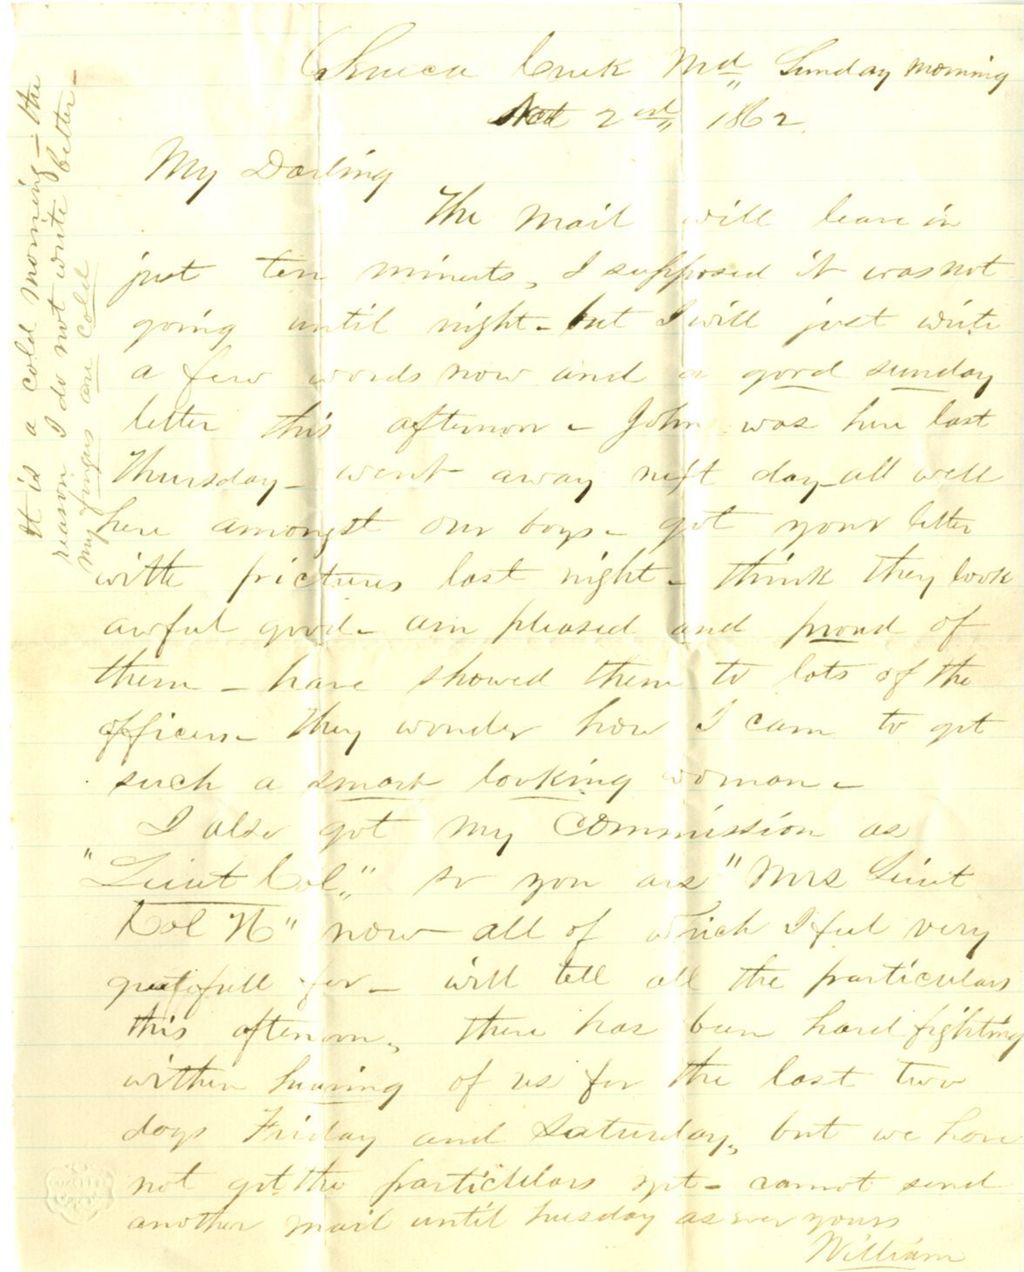 Seneca Creek Md Sunday morning
Nov 2nd 1862
My Darling
The Mail will leave in
just ten minuts, I supposed it was not
going until night - but I will just write
a few words now and a good sunday
letter this afternoon - John was here last
Thursday - went away next day - all well
here amongst our boys - got your letter
with pictures last night - think they look
awful good - am pleased and proud of
them - have showed them to lots of the
officers - they wonder how I cam to get
such a smart looking woman -
I also got my Commission as
"Lieut Col," so you are "Mrs Lieut
Col N" now - all of which I feel very
gratefull for - will tell all the particulars
this afternoon, there has been hard fighting
within hearing of us for the last two
days Friday and Saturday, but we have
not got the particulars yet - cannot send
another mail until tuesday as ever yours
William
It is a cold morning - the
reason I do not write better -
my fingers are cold